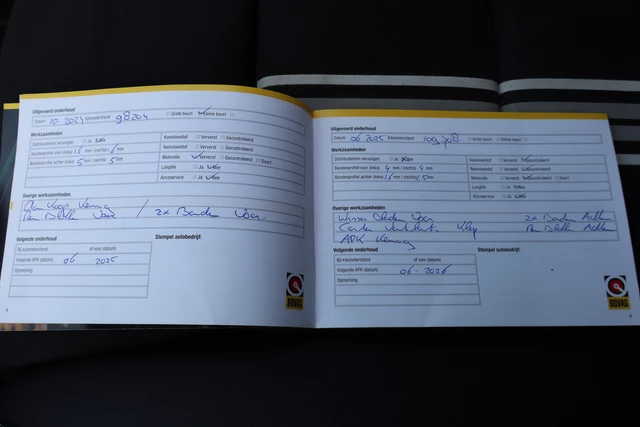 Uitgevoerd onderhoud
Datum 10-2024 Kilometerstand 98204 Grote beurt Kleine beurt
Werkzaamheden
Distributieriem vervangen Ja Nee
Bandenprofiel voor (links) 6 mm / (rechts) 6 mm
Bandenprofiel achter (links) 5 mm / (rechts) 5 mm
Koelvloeistof Ververst Gecontroleerd
Remvloeistof Ververst Gecontroleerd
Motorolie Ververst Gecontroleerd Soort
Longlife Ja Nee
Aircoservice Ja Nee
Overige werkzaamheden
Keuring
Blokken Voor / 2x Banden Voor
Volgende onderhoud
Stempel autobedrijf:
Bij kilometerstand of voor (datum)
Volgende APK (datum) 06 2025
Opmerking
BOVAG
8
Uitgevoerd onderhoud
Datum 06 2025 Kilometerstand Grote beurt Kleine beurt
Werkzaamheden
Distributieriem vervangen Ja Nee
Bandenprofiel voor (links) 4 mm / (rechts) 4 mm
Bandenprofiel achter (links) 6 mm / (rechts) 5 mm
Koelvloeistof Ververst Gecontroleerd
Remvloeistof Ververst Gecontroleerd
Motorolie Ververst Gecontroleerd Soort
Longlife Ja Nee
Aircoservice Ja Nee
Overige werkzaamheden
Voor 2x Banden Achter
Carter Ventilatie Klep Blokken Achter
APK Keuring
Volgende onderhoud
Stempel autobedrijf:
Bij kilometerstand of voor (datum)
Volgende APK (datum) 06-2026
Opmerking
BOVAG
9